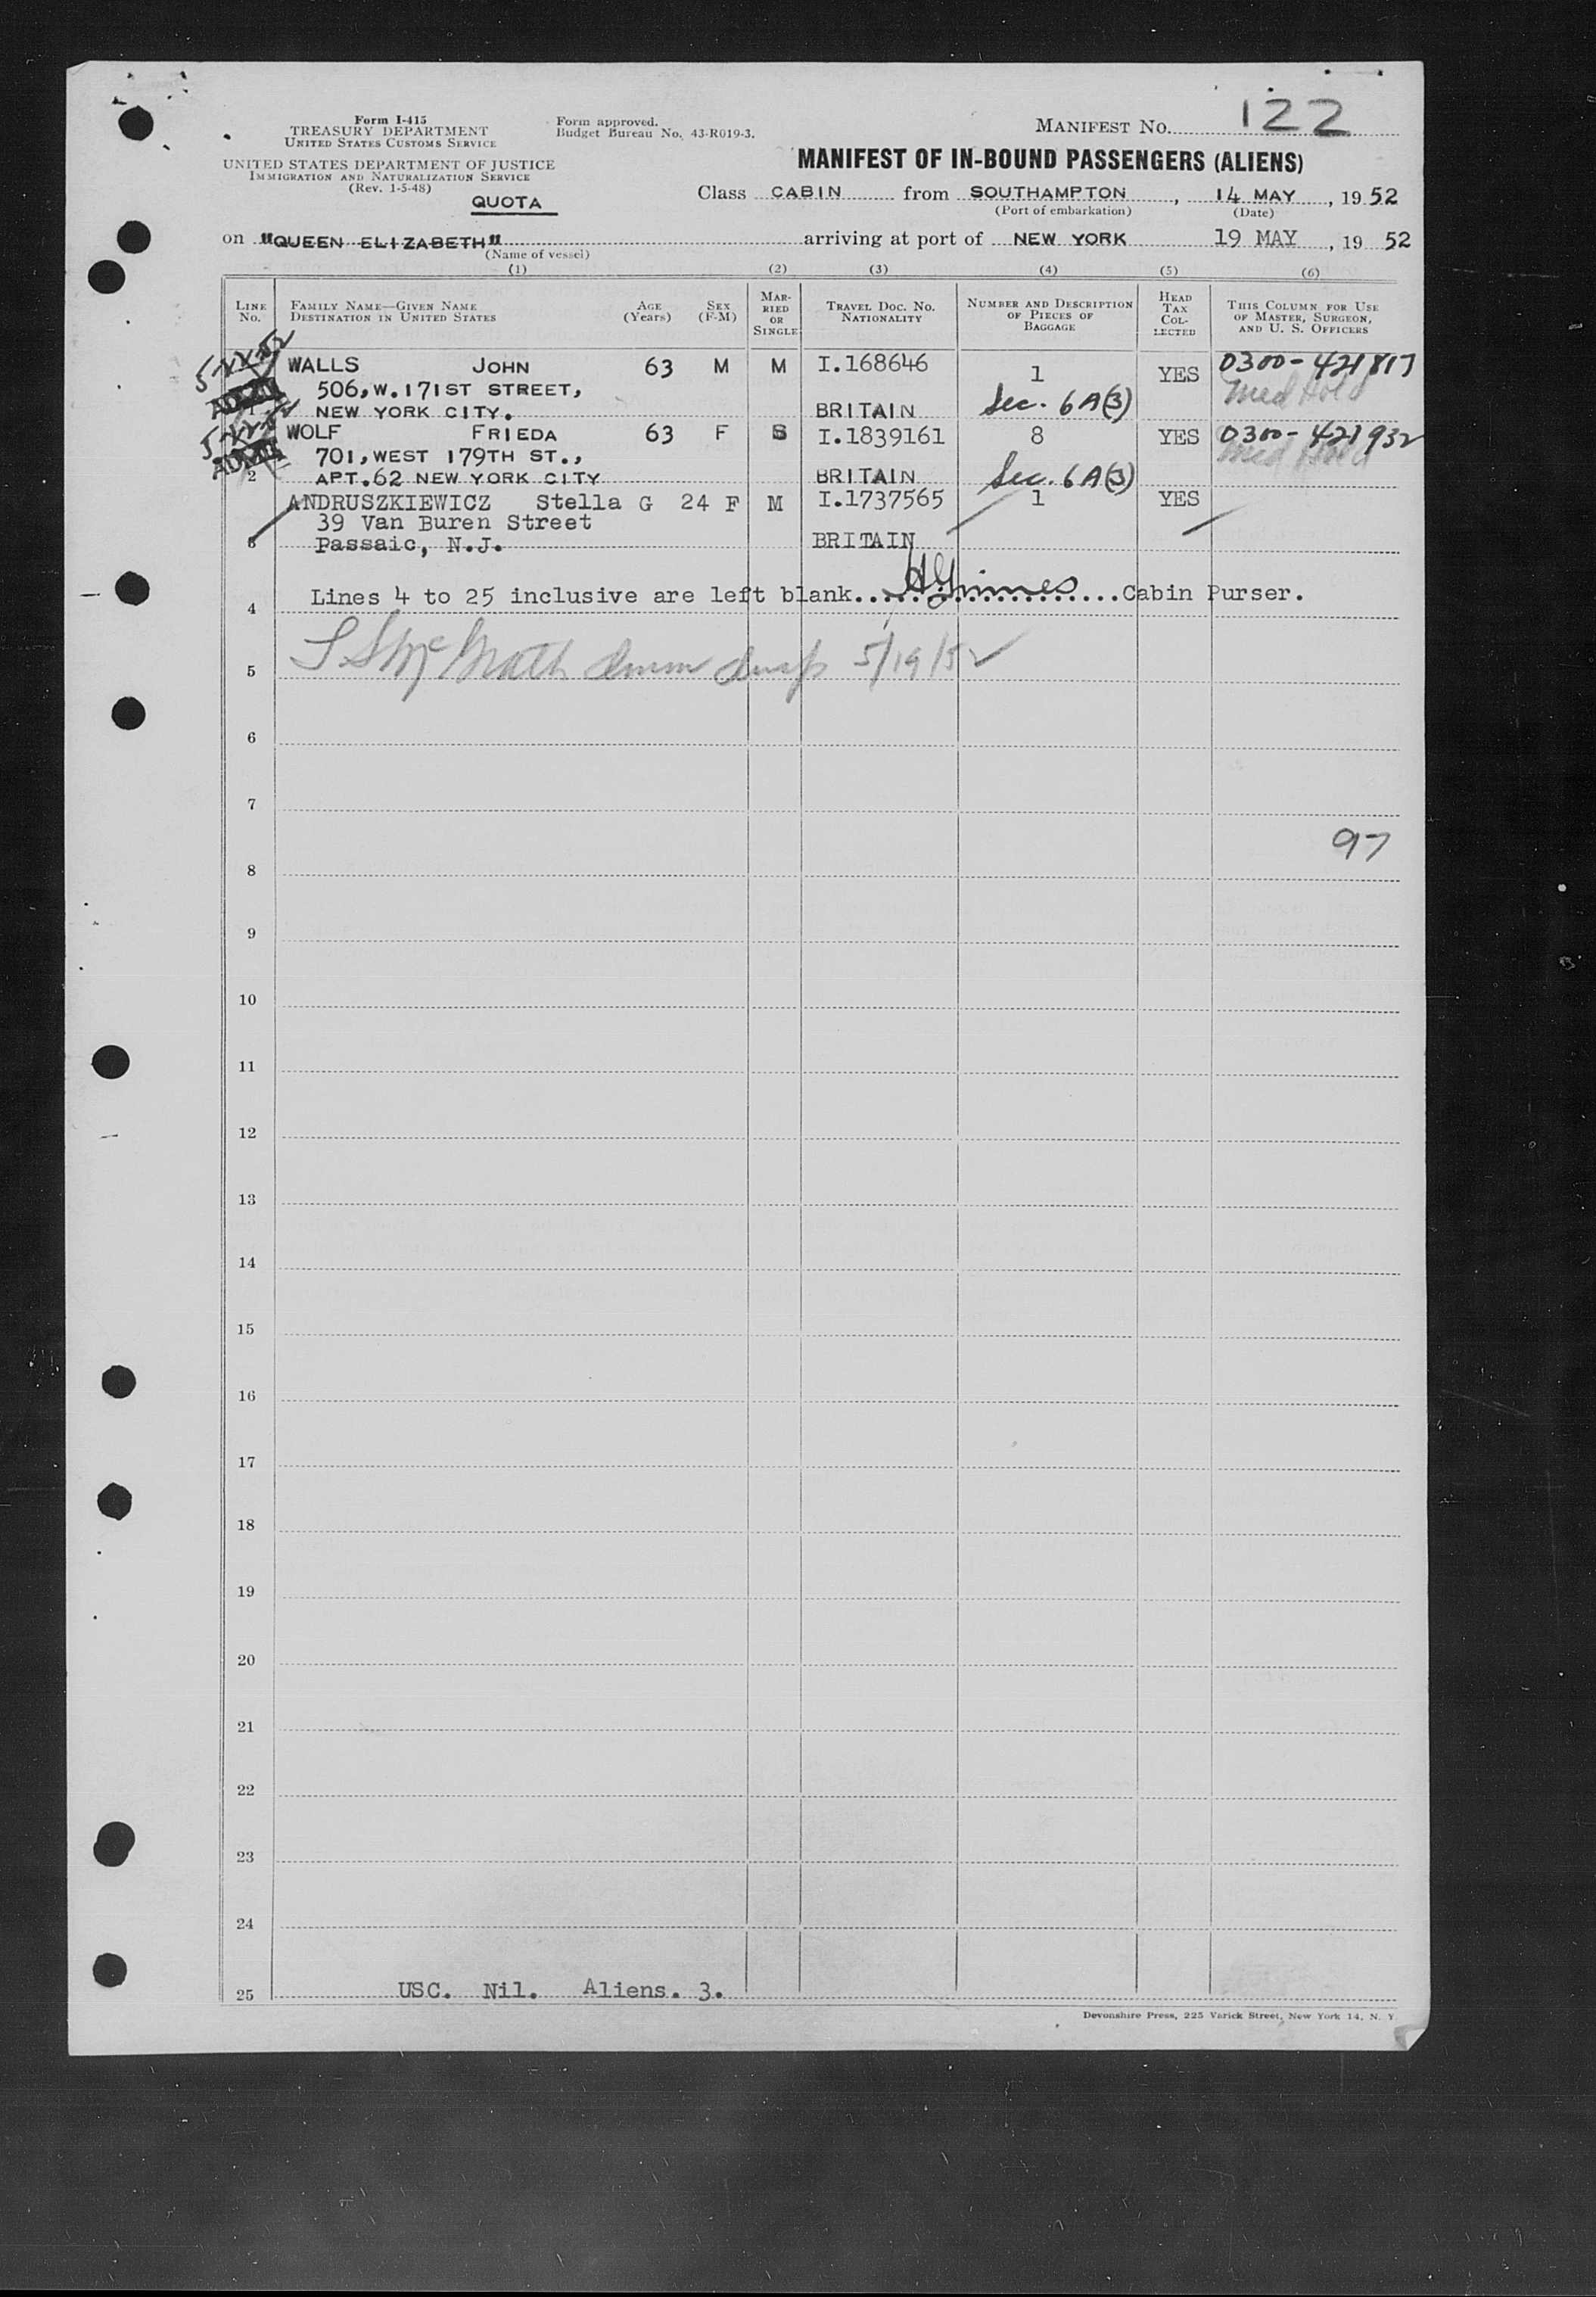 Form I-415
TREASURY DEPARTMENT
UNITED STATES CUSTOMS SERVICE
UNITED STATES DEPARTMENT OF JUSTICE
IMMIGRATION AND NATURALIZATION SERVICE
(Rev. 1-5-48)
QUOTA
Form approved.
Budget Bureau No. 43-R019-3.
MANIFEST NO. 122
MANIFEST OF IN-BOUND PASSENGERS (ALIENS)
Class CABIN from SOUTHAMPTON, 14 MAY, 1952
(Port of embarkation) (Date)
on "QUEEN ELIZABETH" arriving at port of NEW YORK 19 MAY, 19 52
(Name of vessel)
(1) (2) (3) (4) (5) (6)
LINE NO.
FAMILY NAME—GIVEN NAME
DESTINATION IN UNITED STATES
AGE (Years)
SEX (F-M)
MARRIED OR SINGLE
TRAVEL DOC. NO.
NATIONALITY
NUMBER AND DESCRIPTION OF PIECES OF BAGGAGE
HEAD TAX COLLECTED
THIS COLUMN FOR USE OF MASTER, SURGEON, AND U. S. OFFICERS
WALLS JOHN 63 M M I.168646 1 YES 0300-421817
506, W. 171ST STREET, Med Hold
1 NEW YORK CITY. BRITAIN Sec. 6A(3)
WOLF FRIEDA 63 F S I.1839161 8 YES 0300-421932
701, WEST 179TH ST., Med Hold
2 APT. 62 NEW YORK CITY BRITAIN Sec. 6A(3)
ANDRUSZKIEWICZ Stella G 24 F M I.1737565 1 YES
39 Van Buren Street
3 Passaic, N.J. BRITAIN
4 Lines 4 to 25 inclusive are left blank. Cabin Purser.
5 5/19/52
6
7
97
8
9
10
11
12
13
14
15
16
17
18
19
20
21
22
23
24
25 USC. Nil. Aliens. 3.
Devonshire Press, 225 Varick Street, New York 14, N. Y.